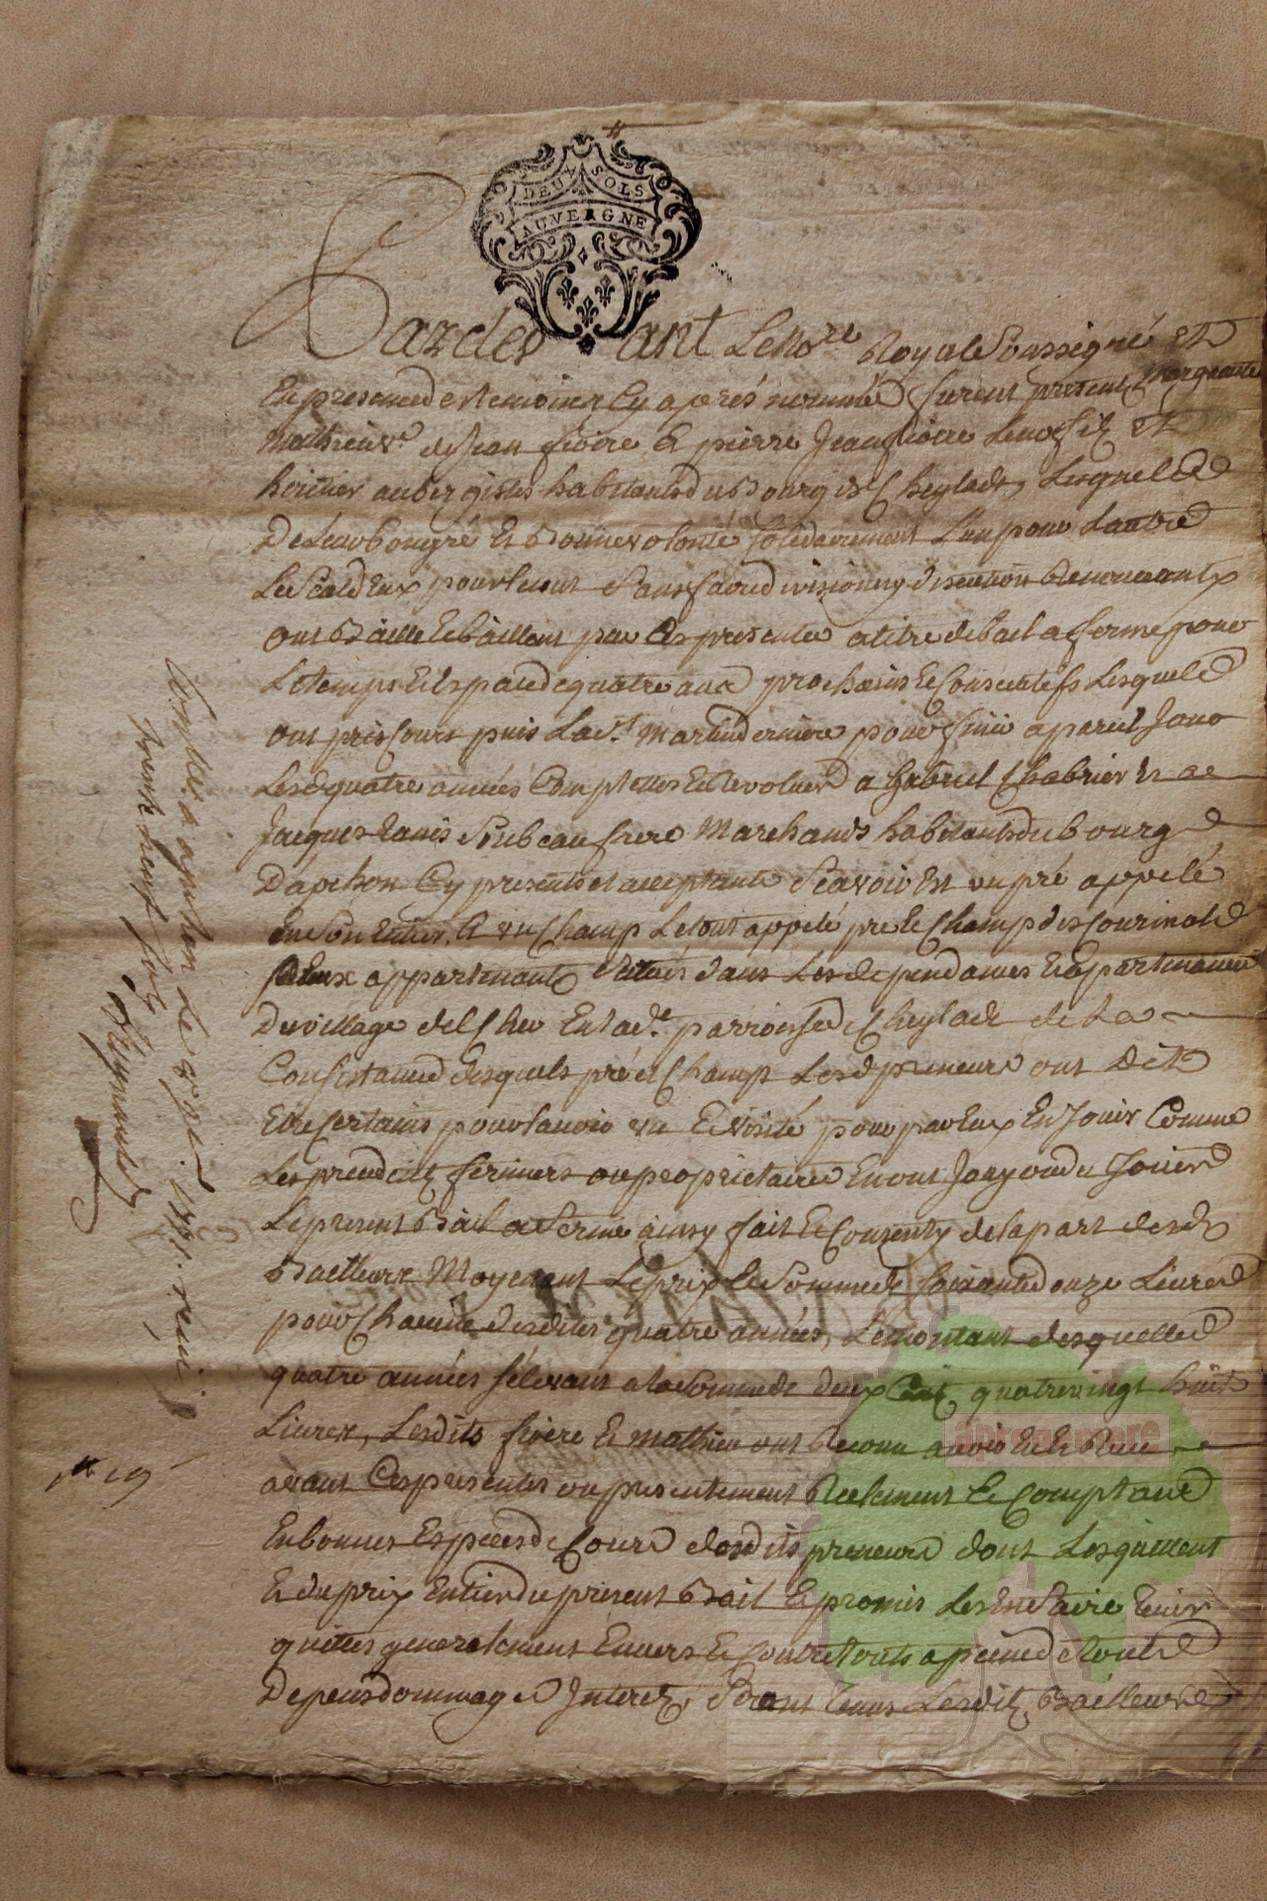 DEUX SOLS
AUVERGNE
Pardevant Le No.re Royal Soussigné Et
En presence des temoins Cy aprés nommés furent presents Margueritte
Mathieu v.e de Jean fioire & pierre Jean fioire Leurs fils Et
heritier aubergistes habitants du Bourg de Cheylade, Lesquels
De Leur bon gré Et Bonne volonté solidairement L'un pour L'autre
Le Seul d'Eux pour le tout Sans faire division ny discution Renonceants
ont Baillé & baillent par Ces presentes a titre de bail a ferme pour
Le temps Et Espace de quatre ans prochains & Consecutifs Lesquels
ont pris Cours puis La St. Martin derniere pour finir a pareil Jour
Lesd quatre années Complettes Et Revolues a Gabriel Chabrier Et a
Jacques Soubeau frere Marchands habitants du bourg
D'apchon Cy presents et acceptants Scavoir Est un pré appelé
En Son Entier & un Champ Le tout appelé pré & Champ des
a Eux appartenants Situés dans Les dependances & appartenances
Du village del Cher En lad.e parroisse de Cheylade de La
Consistance desquels pré et Champ Lesd preneurs ont Dit
Etre Certains pour l'avoir vu & visité pour par Eux En Jouir Comme
Les fermiers ou proprietaires En ont Jouy ou du Jouir
Le present Bail a ferme ainsy fait & Consenty de la part desd
Bailleurs Moyenant Le prix & Somme de soixante douze Livres
pour Chacune desdites quatre années, Le montant desquelles
quatre années s'élevant a la Somme de deux Cent quatre vingt huit
Livres, Lesdits fioire & Mathieu ont Reconnu avoir Eu & Reçu
avant Ces presentes ou presentement Reelement & Comptant
En bonnes Especes de Cours desdits preneurs dont Les quittent
& du prix Entier du present Bail & promis Les En faire tenir
quittes generalement Envers & Contre tous a peine de tous
Depens dommages Interets, Seront tenus Lesdits Bailleurs
Controllé a apchon Le reçu
trente neuf sols
apreogenpro